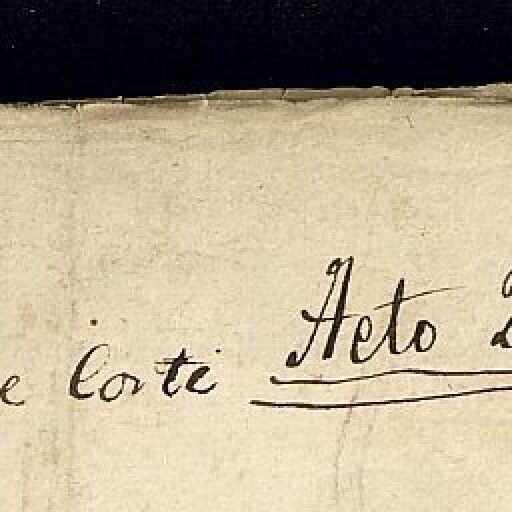 e Corte Aeto 2